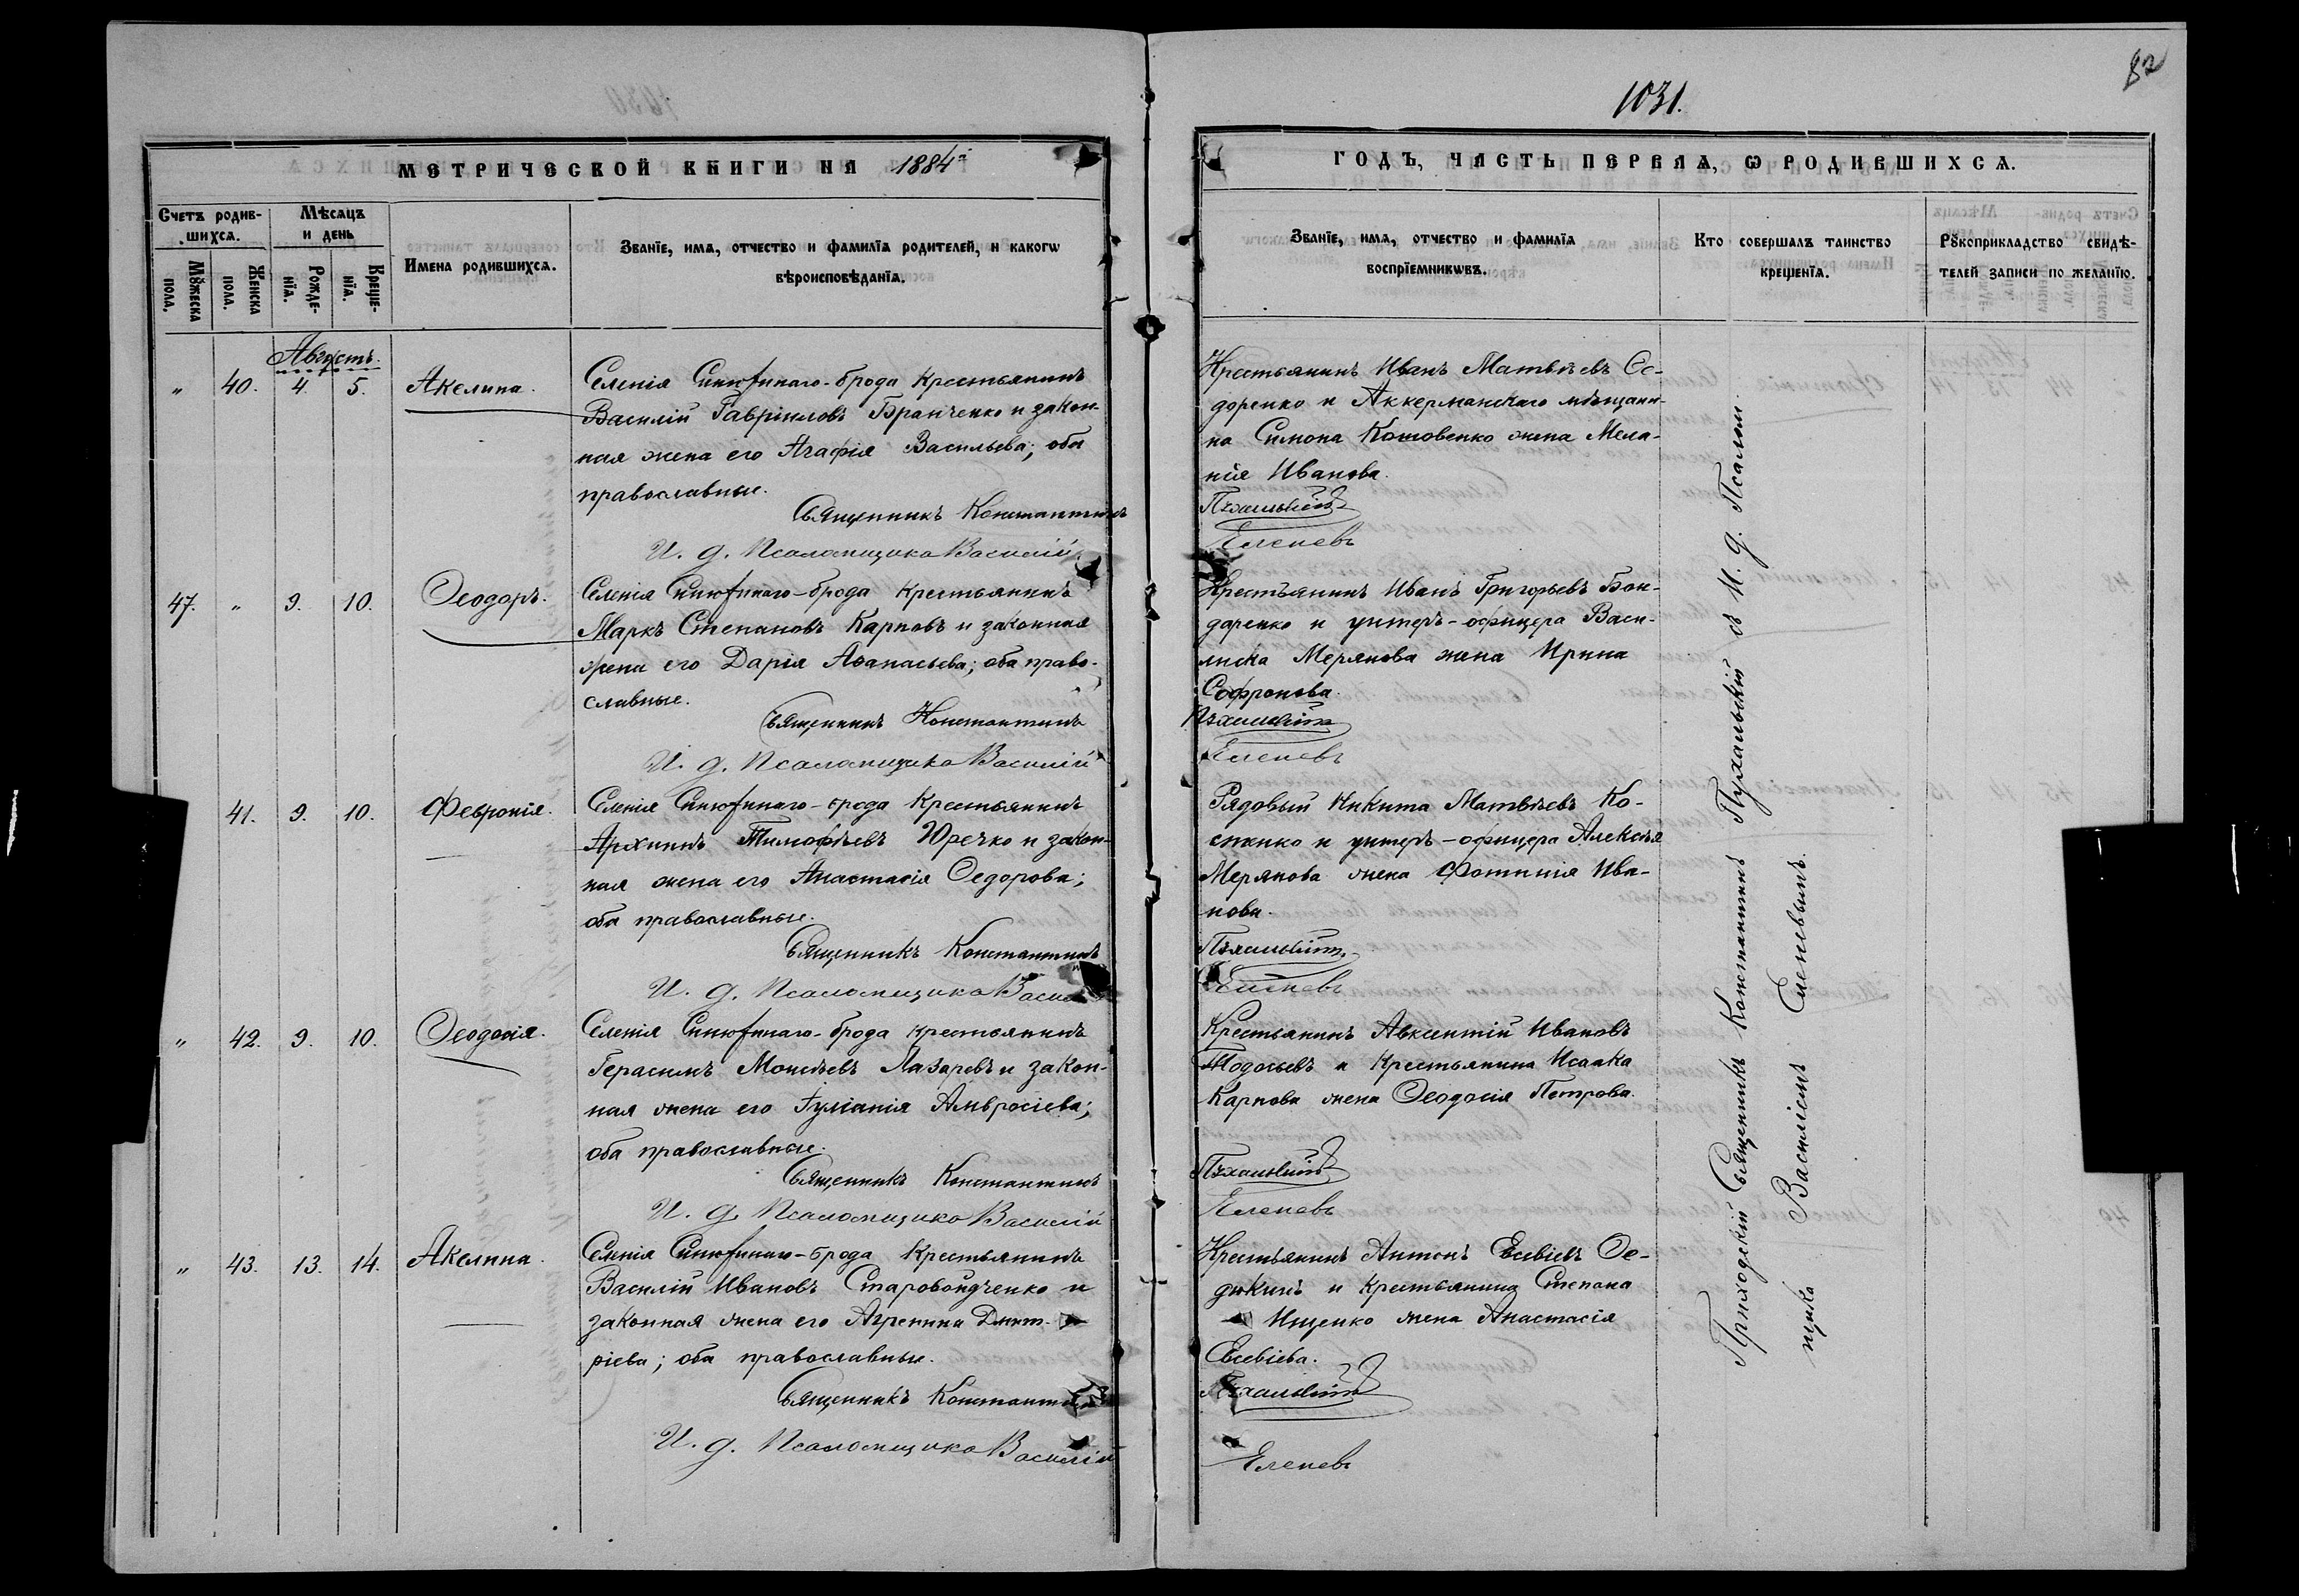 82
1031.
МЕТРИЧЕСКОЙ КНИГИ НА 1884й
ГОДЪ, ЧАСТЬ ПЕРВАѦ, Ѡ РОДИВШИХСѦ.
Счетъ родив-
шихсѧ.
Мѣсѧцъ
и день
Мꙋжеска
пола.
Женска
пола.
Рожде-
нїѧ.
Креще-
нїѧ.
Имена родившихсѧ.
Званїе, имѧ, отчество и фамилїѧ родителей, и какогѡ
вѣроисповѣданїѧ.
Званїе, имѧ, отчество и фамилїѧ
воспрїемникѡвъ.
Кто совершалъ таинство
крещенїѧ.
Рꙋкоприкладство свидѣ-
телей записи по желанїю.
Августъ.
" 40. 4. 5. Акелина.
Селенія Синюхинаго-брода крестьянинъ
Василій Гавріиловъ Бранченко и закон-
ная жена его Агафія Васильева; оба
православные.
Священникъ Константинъ
И. д. Псаломщика Василій
Крестьянинъ Иванъ Матвѣевъ Се-
доренко и Аккерманскаго мѣщани-
на Симона Кошовенко жена Мела-
нія Иванова.
Пухальскій
Еленевъ
47. " 9. 10. Ѳеодоръ.
Селенія Синюхинаго-брода крестьянинъ
Маркъ Степановъ Карповъ и законная
жена его Дарія Аѳанасьева; оба право-
славные.
Священникъ Константинъ
И. д. Псаломщика Василій
Крестьянинъ Иванъ Григорьевъ Бон-
даренко и унтеръ-офицера Васи-
лиска Мерянова жена Ирина
Софронова.
Пухальскій
Еленевъ
41. 9. 10. Февронія.
Селенія Синюхинаго-брода крестьянинъ
Архипъ Тимофѣевъ Юречко и закон-
ная жена его Анастасія Ѳедорова;
оба православные.
Священникъ Константинъ
И. д. Псаломщика Василій
Рядовый Никита Матвѣевъ Ко-
сженко и унтеръ-офицера Алексѣя
Мерянова жена Фотинія Ива-
нова.
Пухальскій
Еленевъ
" 42. 9. 10. Ѳеодосія.
Селенія Синюхинаго-брода крестьянинъ
Герасимъ Моисѣевъ Лазаревъ и закон-
ная жена его Іуліанія Амвросіева;
оба православные.
Священникъ Константинъ
И. д. Псаломщика Василій
Крестьянинъ Авксентій Ивановъ
Тодосьевъ и крестьянина Исаака
Карпова жена Ѳеодосія Петрова.
Пухальскій
Еленевъ
" 43. 13. 14. Акелина.
Селенія Синюхинаго-брода крестьянинъ
Василій Ивановъ Старовойдченко и
законная жена его Агрепина Дмит-
ріева; оба православные.
Священникъ Константинъ
И. д. Псаломщика Василій
Крестьянинъ Антонъ Евсевіевъ Ѳе-
дюкинъ и крестьянина Степана
Ищенко жена Анастасія
Евсевіева.
Пухальскій
Еленевъ
Приходскій Священникъ Константинъ Пухальскій съ И. д. Псалом-
щика Василіемъ Еленевымъ.